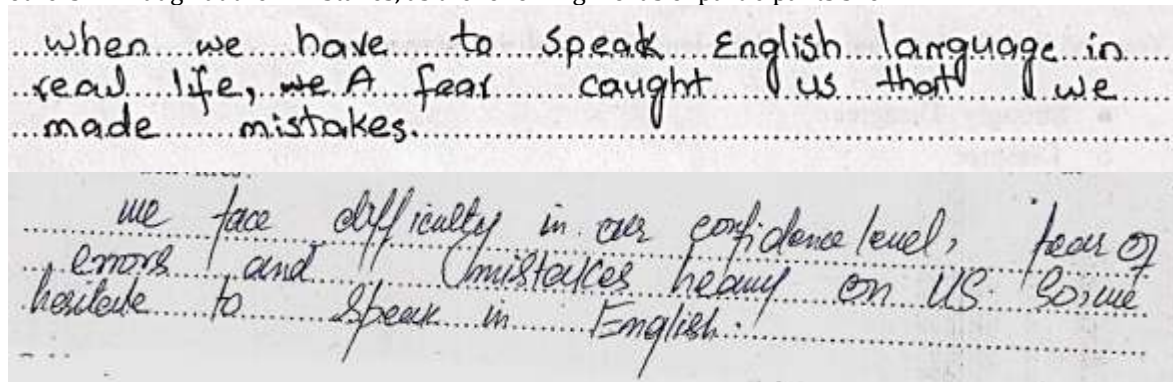 when we have to speak English language in
real life, we A fear caught us that we
made mistakes.
we face difficulty in our confidence level, fear of
errors and mistakes heavy on us. So we
hesitate to speak in English.